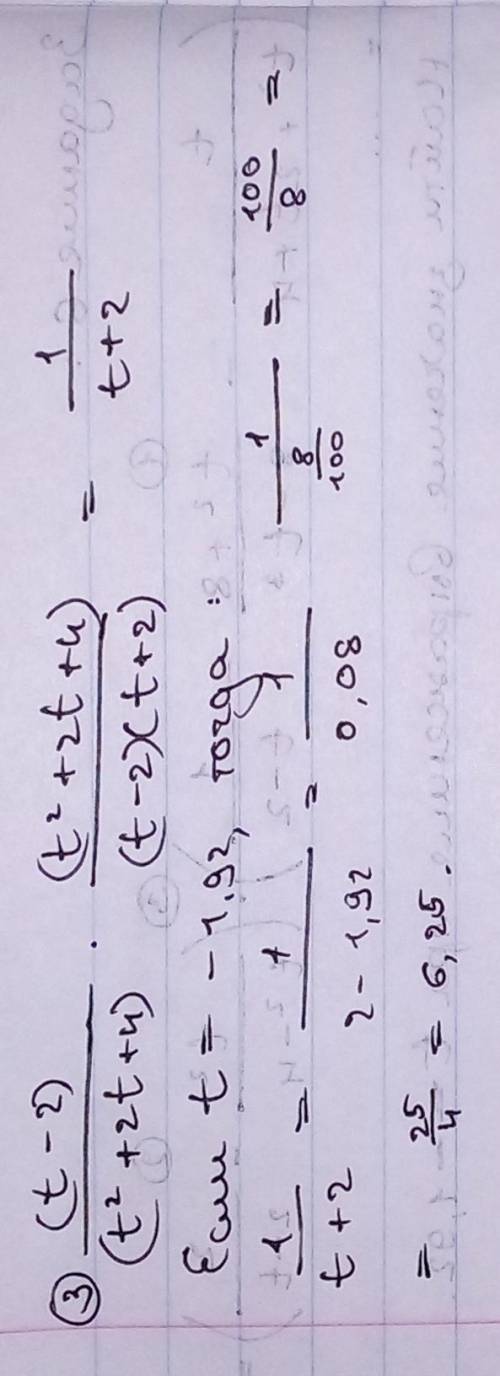 ③ (t - 2)/(t² + 2t + 4) · (t² + 2t + 4)/(t - 2)(t + 2) = 1/(t + 2)
Если t = - 1,92, тогда :
1/(t + 2) = 1/(2 - 1,92) = 1/0,08 = 1/(8/100) = 100/8 =
= 25/4 = 6,25.